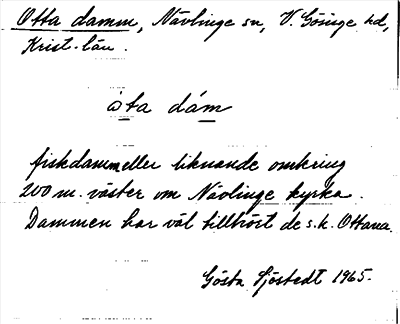 Otta damm, Nävlinge sn, V. Göinge hd,
Krist. län.
åta dám
fiskdamm eller liknande omkring
200 m. väster om Nävlinge kyrka.
Dammen har väl tillhört de s.k. Ottarna.
Gösta Sjöstedt 1965.